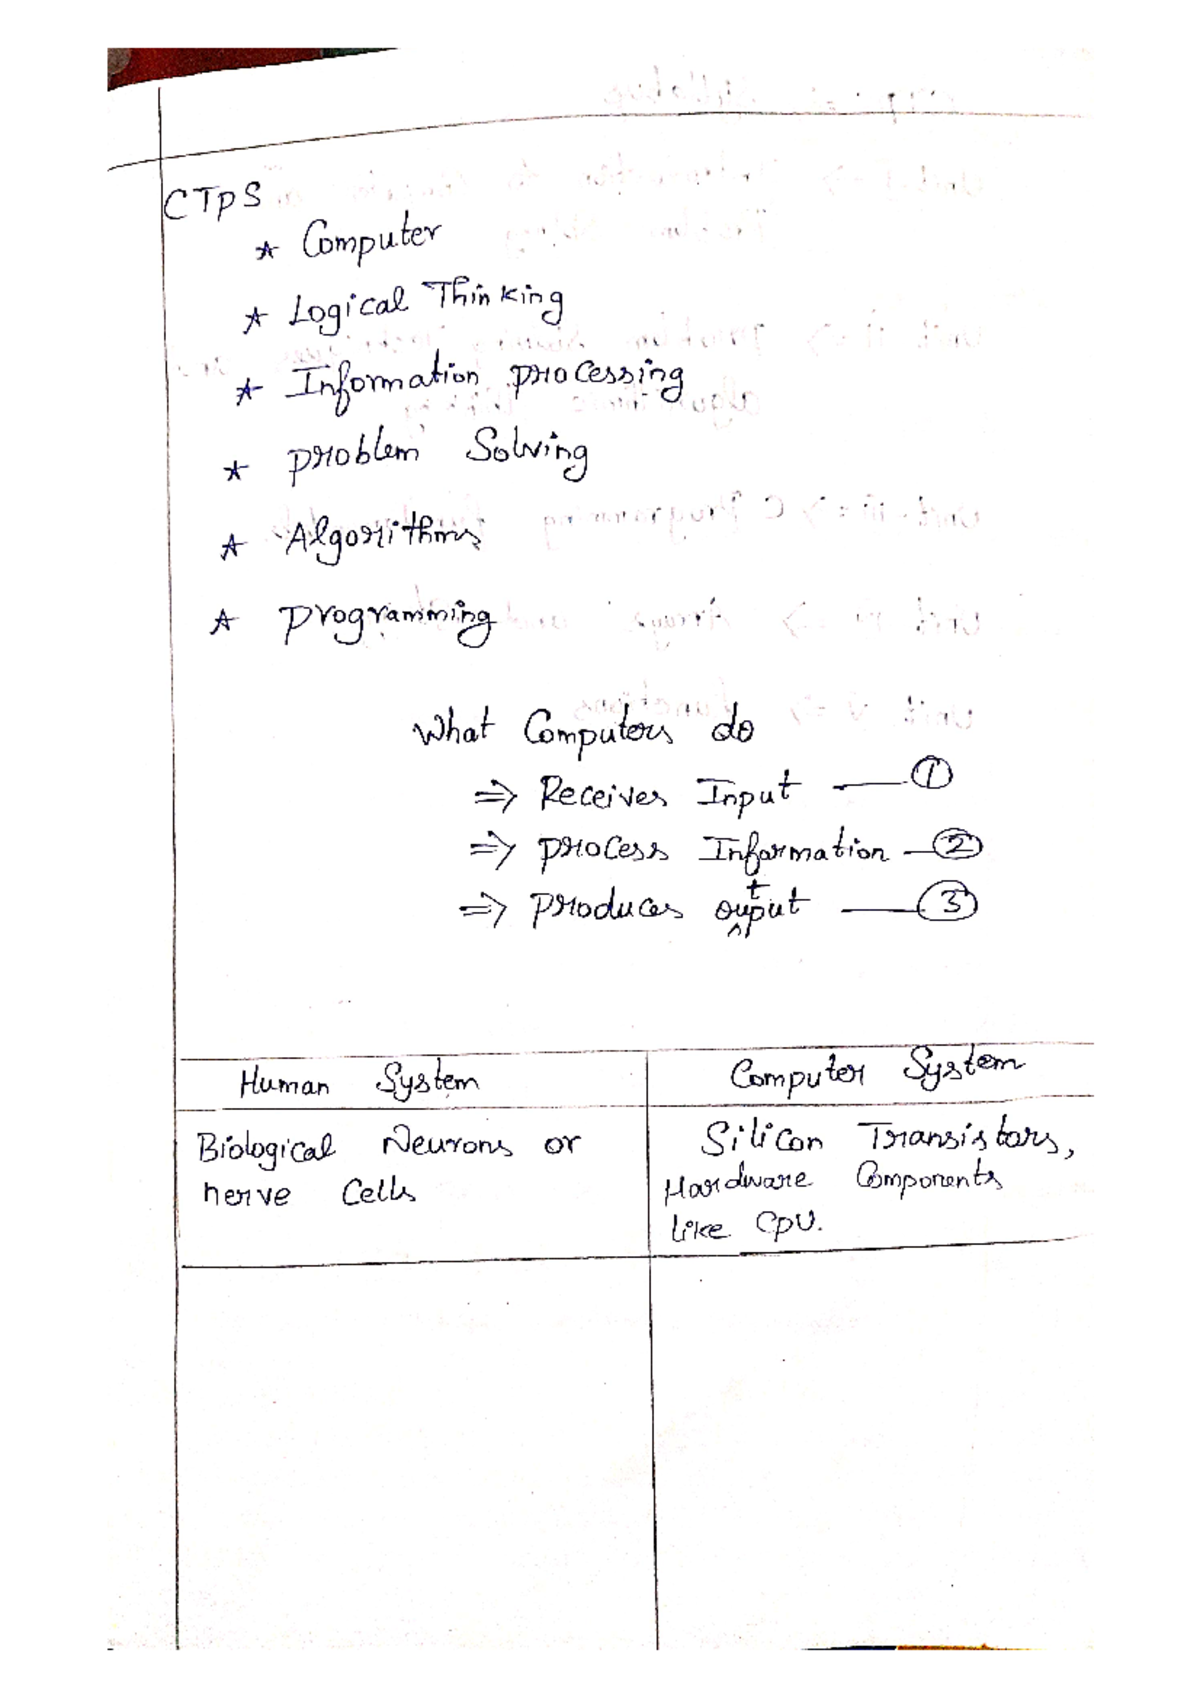 CTPS
★ Computer
★ Logical Thinking
★ Information processing
★ problem Solving
★ Algorithms
★ programming
What Computers do
⇒ Receives Input —— ①
⇒ process Information — ②
⇒ produces output —— ③
Human System
Computer System
Biological Neurons or
nerve Cells
Silicon Transistors,
Hardware Components
like CPU.